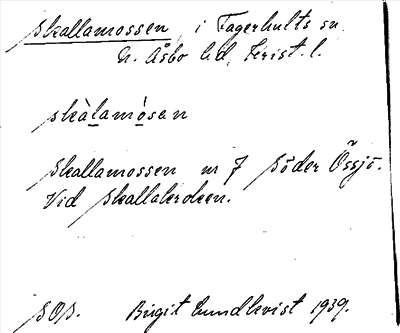 Skallamossen, i Fagerhults sn,
N. Åsbo hd, Krist. l.
skàlamósan
Skallamossen nr 7 Söder Össjö.
Vid Skallakroken.
SOS. Birgit Lundkvist 1939.